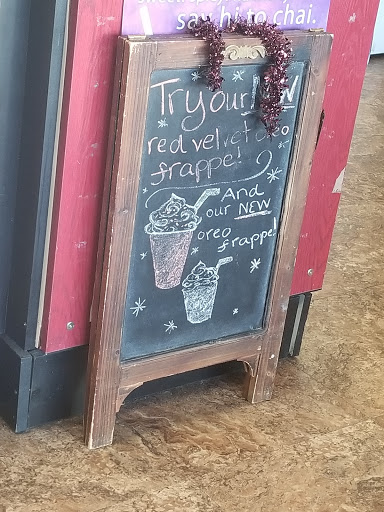 say hi to chai.
Try our NEW
red velvet oreo
frappe!
And
our NEW
oreo
frappe!